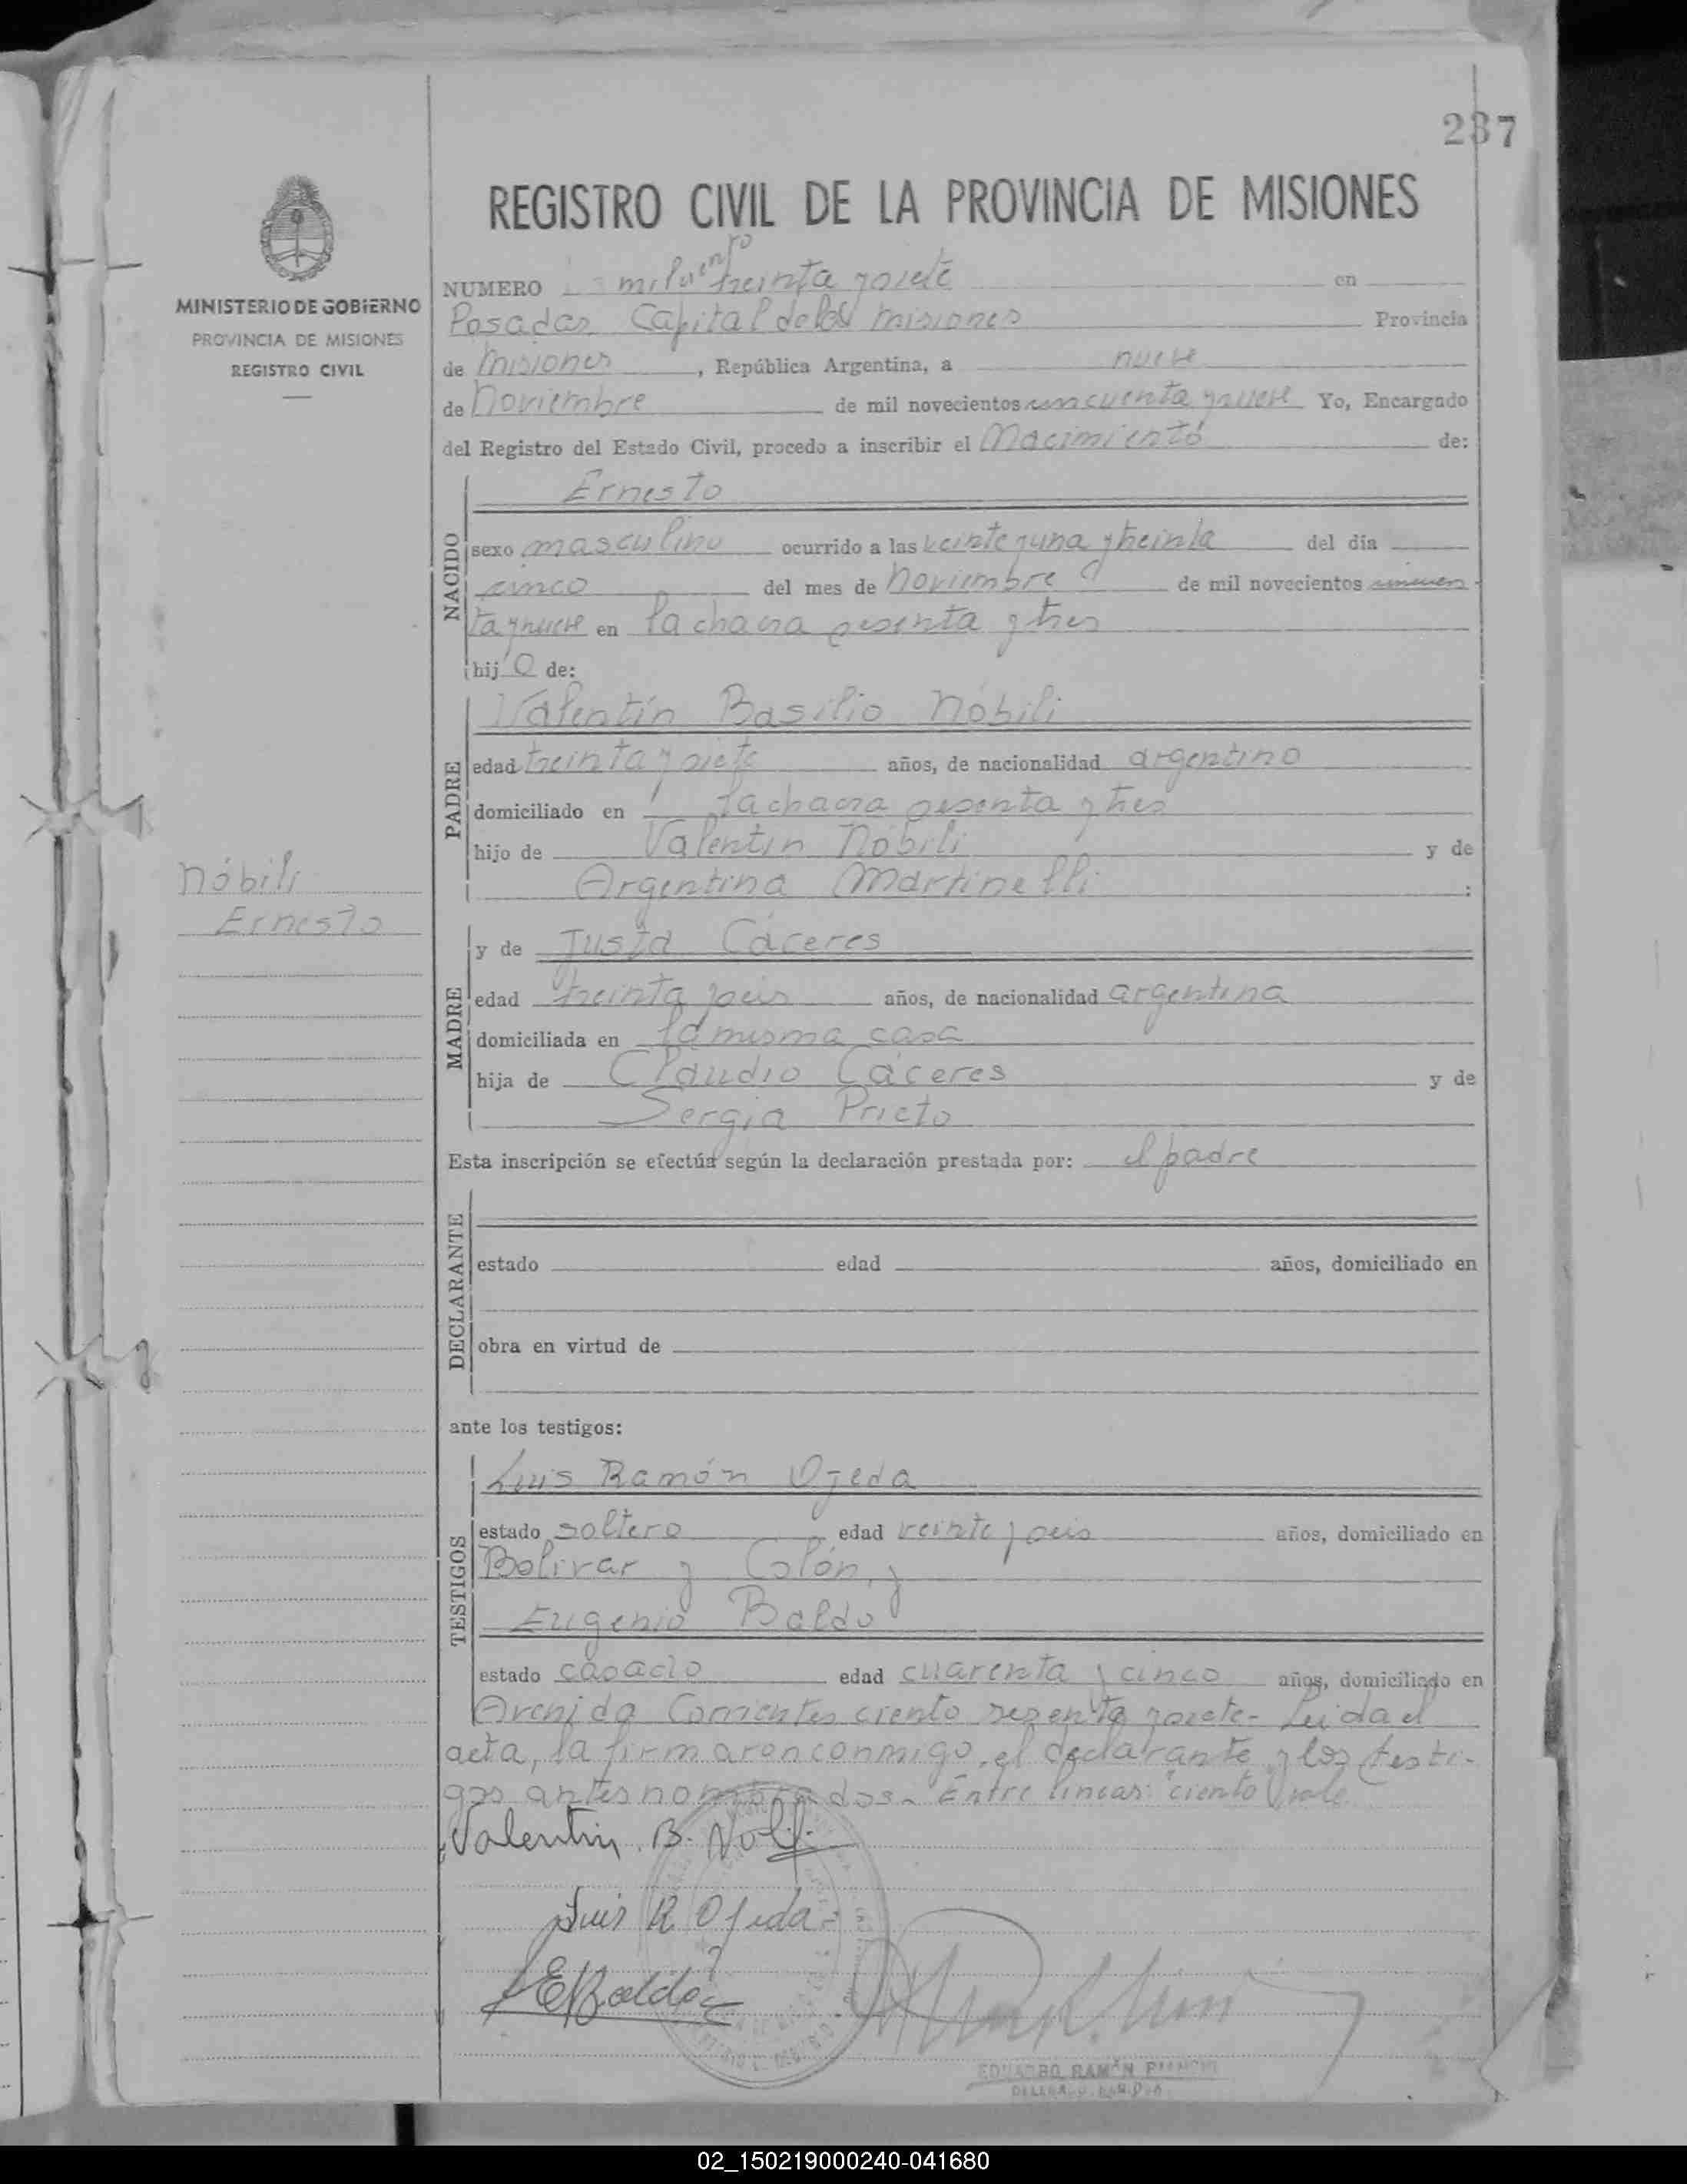 237
REGISTRO CIVIL DE LA PROVINCIA DE MISIONES
MINISTERIO DE GOBIERNO
PROVINCIA DE MISIONES
REGISTRO CIVIL
ciento
NUMERO mil treinta y siete en
Posadas Capital de Misiones Provincia
de Misiones, República Argentina, a nueve
de Noviembre de mil novecientos cincuenta y nueve Yo, Encargado
del Registro del Estado Civil, procedo a inscribir el Nacimiento de:
NACIDO
Ernesto
sexo masculino ocurrido a las veinte y una y treinta del día
cinco del mes de Noviembre de mil novecientos cincuen
ta y nueve en la chacra sesenta y tres
hijo de:
PADRE
Valentín Basilio Nóbili
edad treinta y siete años, de nacionalidad argentino
domiciliado en la chacra sesenta y tres
hijo de Valentín Nóbili y de
Argentina Martinelli :
Nóbili
Ernesto
MADRE
y de Justa Cáceres
edad treinta y seis años, de nacionalidad argentina
domiciliada en la misma casa
hija de Claudio Cáceres y de
Sergia Prieto
Esta inscripción se efectúa según la declaración prestada por: el padre
DECLARANTE
estado edad años, domiciliado en
obra en virtud de
ante los testigos:
TESTIGOS
Luis Ramón Ojeda
estado soltero edad veinte y seis años, domiciliado en
Bolivar y Colón, y
Eugenio Baldo
estado casado edad cuarenta y cinco años, domiciliado en
Avenida Corrientes ciento sesenta y siete- Leida el
acta, la firmaron conmigo, el declarante y los testi-
gos antes nombrados.- Entre lineas: "ciento" vale
Valentin B. Nobili
Luis R Ojeda
E Baldo
EDUARDO RAMÓN
02_150219000240-041680